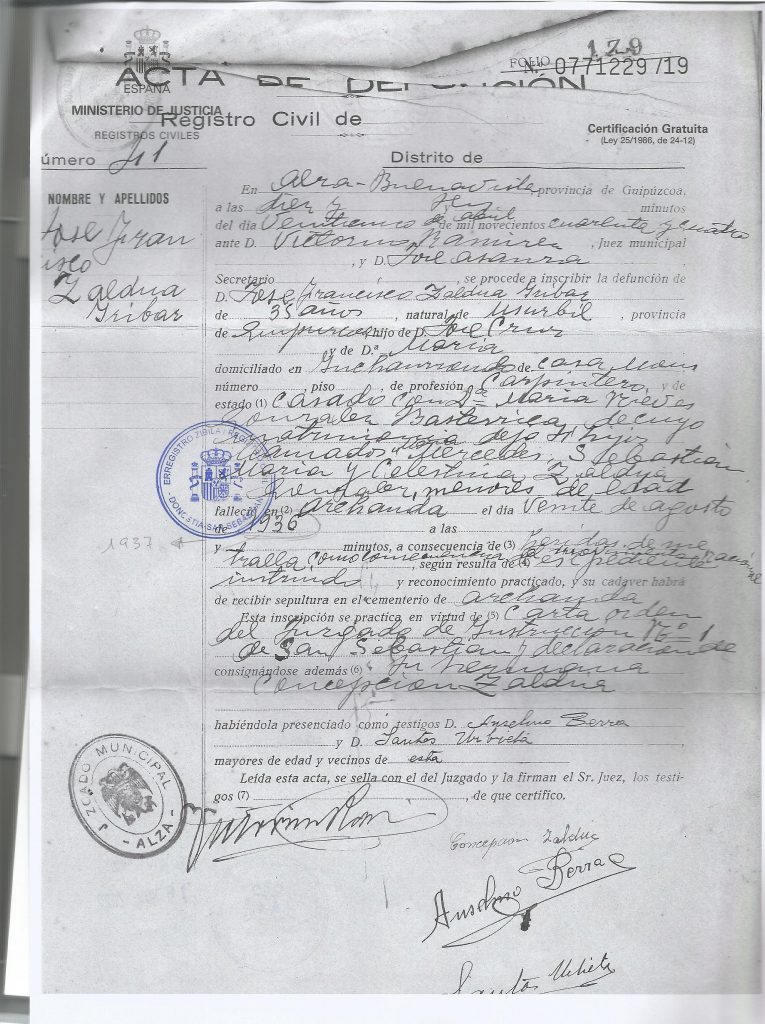 129
FOLIO
N.º 0771229 /19
ACTA DE DEFUNCIÓN
ESPAÑA
MINISTERIO DE JUSTICIA
Registro Civil de
REGISTROS CIVILES
Certificación Gratuita
(Ley 25/1986, de 24-12)
úmero 41
Distrito de
NOMBRE Y APELLIDOS
Jose Fran
isco
Zaldua
Iribar
En Alza-Buenavista, provincia de Guipúzcoa,
a las diez y minutos
del día de abril de mil novecientos cuarenta y cuatro
ante D. Victorino Ramirez, Juez municipal
, y D. Jose
Secretario , se procede a inscribir la defunción de
D. Jose Francisco Zaldua Iribar
de 35 años, natural de Usurbil, provincia
de Guipuzcoa hijo de D. Jose Cruz
y de D.ª Maria
domiciliado en de casa
número , piso , de profesión Carpintero, y de
estado (1) casado con D.ª Maria Nieves
Gonzalez Basterrica, de cuyo
matrimonio deja hijos
llamados Mercedes, Sebastian
Maria y Celestina Zaldua
Gonzalez, menores de edad
falleció en (2) Archanda el día veinte de agosto
de 1936 a las
1937
y minutos, a consecuencia de (3) heridas de me
tralla, como consecuencia
, según resulta de (4) expediente
instruido y reconocimiento practicado, y su cadaver habrá
de recibir sepultura en el cementerio de Archanda
Esta inscripción se practica en virtud de (5) carta orden
del Juzgado de Instruccion Nº 1
de San Sebastian y declaracion de
consignándose además (6) su hermana
Concepcion Zaldua
habiéndola presenciado como testigos D. Anselmo Berra
y D. Santos Urbieta,
mayores de edad y vecinos de esta
Leída esta acta, se sella con el del Juzgado y la firman el Sr. Juez, los testi-
gos (7) , de que certifico.
ERREGISTRO ZIBILA
DONOSTIA-SAN SEBASTIAN
JUZGADO MUNICIPAL
- ALZA -
Concepcion Zaldua
Anselmo Berra
Santos Urbieta